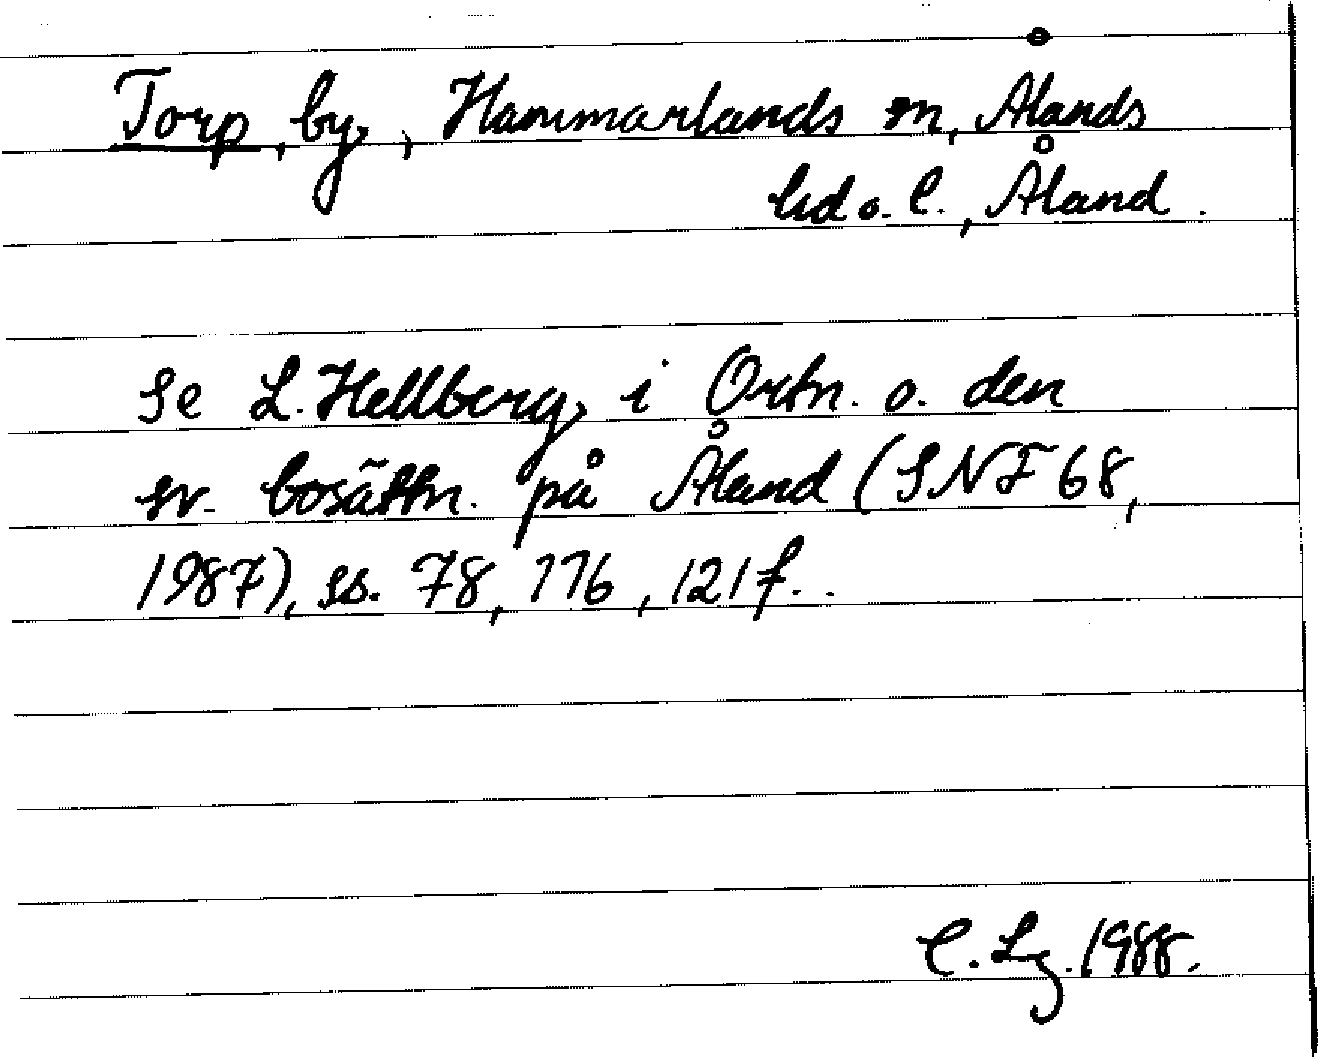 Torp, by, Hammarlands sn, Ålands
hd o. l., Åland.
Se L. Hellberg, i Ortn. o. den
sv. bosättn. på Åland (SNF 68,
1987), ss. 78, 116, 121 f..
C. Lg. 1988.